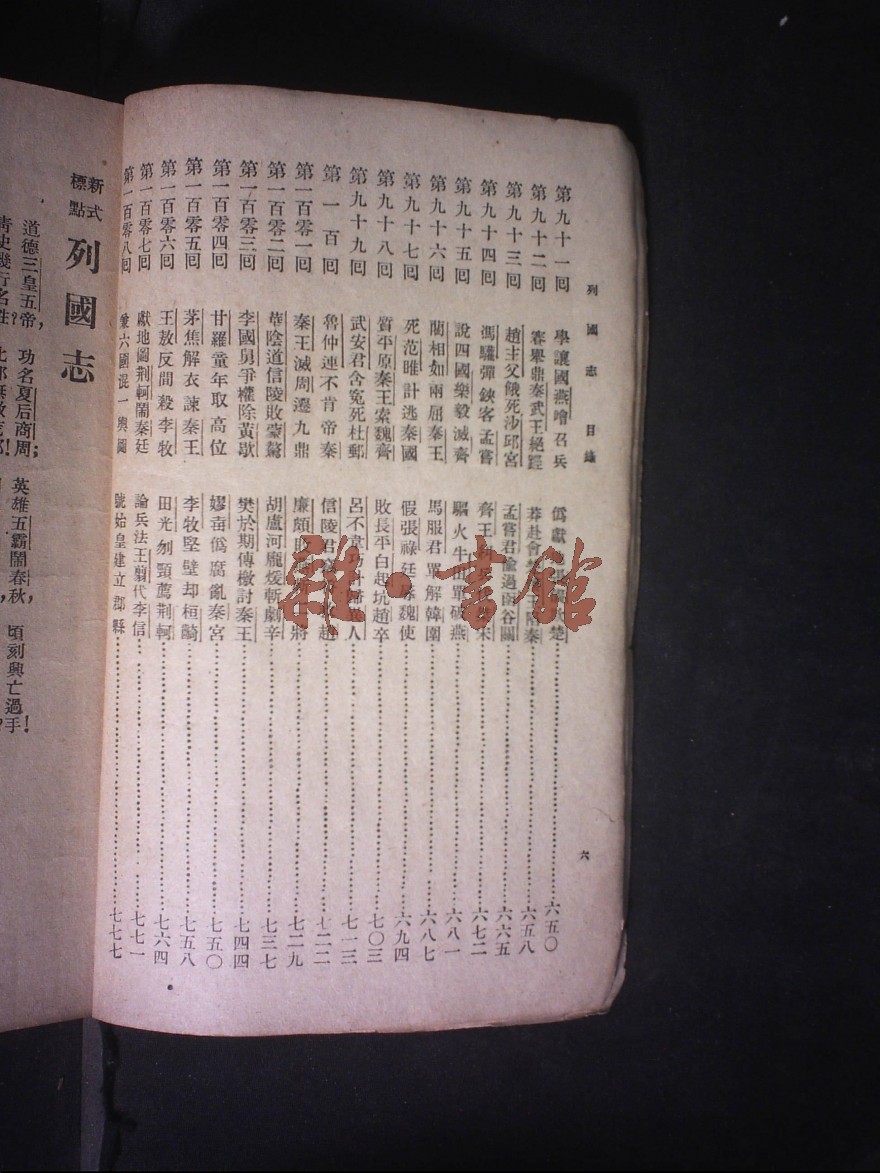 列國志 目錄
六
第九十一囘 學讓國燕噲召兵 僞獻地張儀欺楚 六五〇
第九十二囘 賽舉鼎秦武王絕脛 莽赴會楚懷王陷秦 六五八
第九十三囘 趙主父餓死沙邱宮 孟嘗君偷過函谷關 六六五
第九十四囘 馮驩彈鋏客孟嘗 齊王糾兵伐桀宋 六七二
第九十五囘 說四國樂毅滅齊 驅火牛田單破燕 六八一
第九十六囘 藺相如兩屈秦王 馬服君單解韓圍 六八七
第九十七囘 死范睢計逃秦國 假張祿廷辱魏使 六九四
第九十八囘 質平原秦王索魏齊 敗長平白起坑趙卒 七〇三
第九十九囘 武安君含冤死杜郵 呂不韋巧計歸異人 七一三
第一百囘 魯仲連不肯帝秦 信陵君竊符救趙 七二二
第一百零一囘 秦王滅周遷九鼎 廉頗敗燕斬二將 七二九
第一百零二囘 華陰道信陵敗蒙驁 胡盧河龐煖斬劇辛 七三七
第一百零三囘 李國舅爭權除黃歇 樊於期傳檄討秦王 七四四
第一百零四囘 甘羅童年取高位 嫪毐僞腐亂秦宮 七五〇
第一百零五囘 茅焦解衣諫秦王 李牧堅壁却桓齮 七五八
第一百零六囘 王敖反間殺李牧 田光刎頸薦荆軻 七六四
第一百零七囘 獻地圖荆軻鬧秦廷 論兵法王翦代李信 七七一
第一百零八囘 兼六國混一輿圖 號始皇建立郡縣 七七七
新式標點 列國志
道德三皇五帝，功名夏后商周；英雄五霸鬧春秋，頃刻興亡過手！
青史幾行名姓？
雜·書館